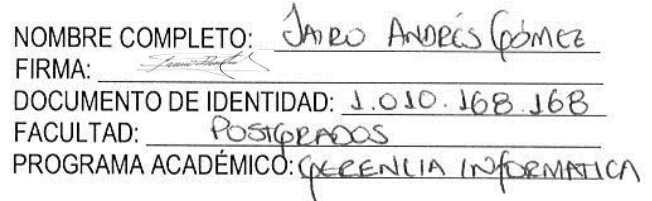 NOMBRE COMPLETO: JAIRO ANDRÉS GÓMEZ
FIRMA:
DOCUMENTO DE IDENTIDAD: 1.010.168.168
FACULTAD: POSTGRADOS
PROGRAMA ACADÉMICO: GERENCIA INFORMATICA